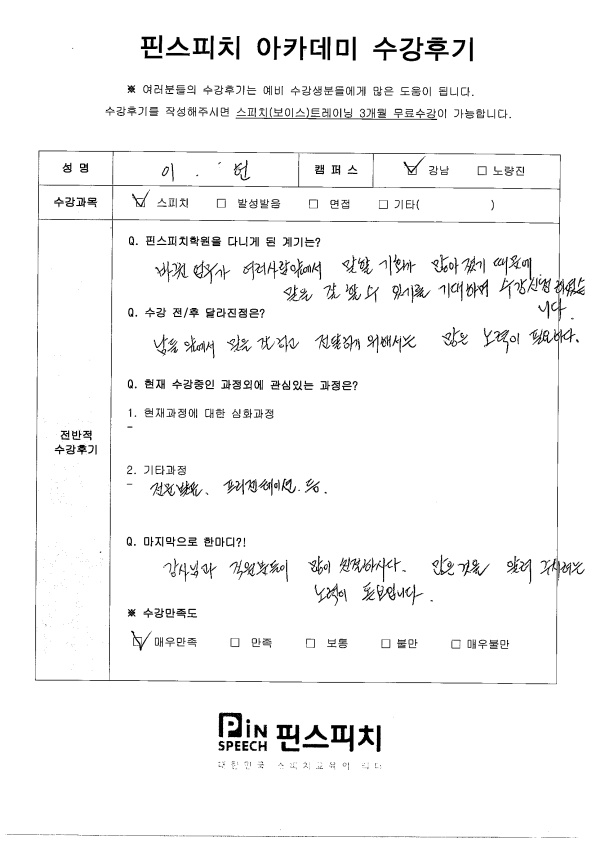 핀스피치 아카데미 수강후기
※ 여러분들의 수강후기는 예비 수강생분들에게 많은 도움이 됩니다.
수강후기를 작성해주시면 스피치(보이스)트레이닝 3개월 무료수강이 가능합니다.
성 명 이 . 헌 캠 퍼 스 ☑ 강남 □ 노량진
수강과목 ☑ 스피치 □ 발성발음 □ 면접 □ 기타( )
Q. 핀스피치학원을 다니게 된 계기는?
바뀐 업무가 여러사람앞에서 말할 기회가 많아 졌기 때문에
말을 잘 할 수 있기를 기대하며 수강신청 하였습
니다.
Q. 수강 전/후 달라진점은?
남들 앞에서 말을 잘 하고 전달하기 위해서는 많은 노력이 필요하다.
Q. 현재 수강중인 과정외에 관심있는 과정은?
1. 현재과정에 대한 심화과정
-
전반적
수강후기
2. 기타과정
- 프리젠테이션. 등.
Q. 마지막으로 한마디?!
강사님과 직원분들이 많이 친절하시다. 많은것을 알려 주시려는
노력이 돋보입니다.
※ 수강만족도
☑ 매우만족 □ 만족 □ 보통 □ 불만 □ 매우불만
PiN SPEECH 핀스피치
대한민국 스피치교육의 리더